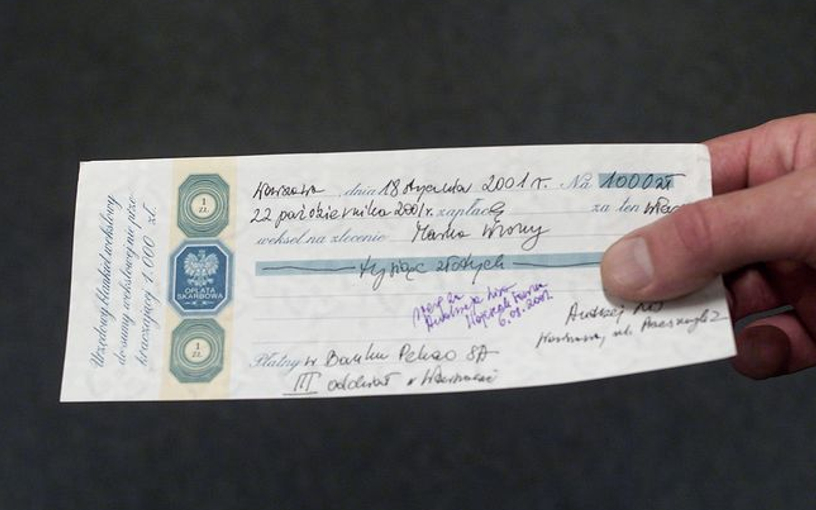 Urzędowy blankiet wekslowy
do sumy wekslowej nie prze-
kraczającej 1.000 zł.
1
ZŁ
OPŁATA
SKARBOWA
1
ZŁ
Warszawa, dnia 18 stycznia 2001 r. Na 1000 zł
22 października 2001 r. zapłacę za ten
weksel na zlecenie Marka Wrony
tysiąc złotych
poręczam
6.01.2001
Andrzej
Warszawa, ul.
Płatny w Banku Pekao SA
III oddział w Warszawie